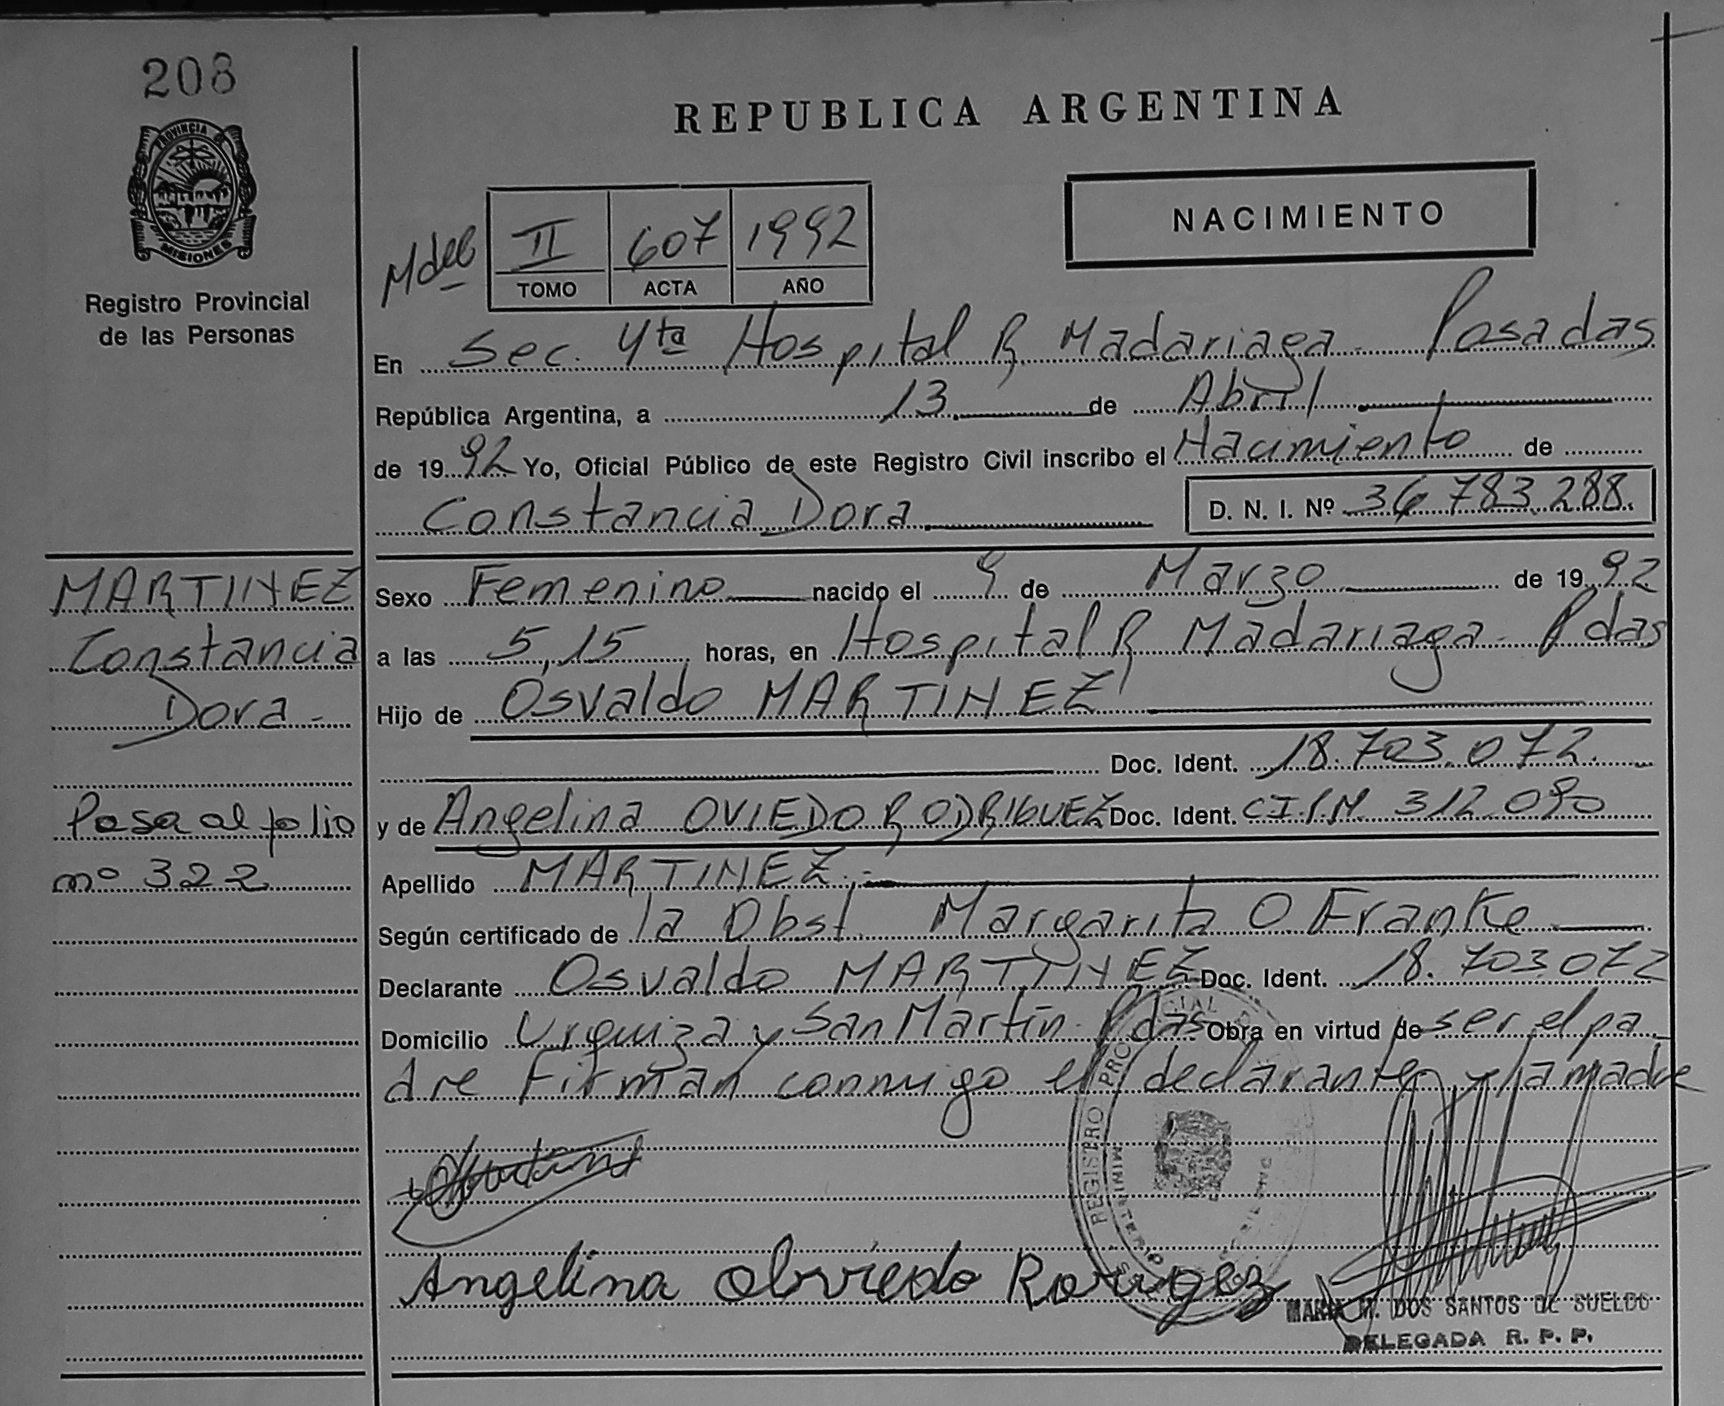 208
PROVINCIA DE
MISIONES
Registro Provincial
de las Personas
REPUBLICA ARGENTINA
NACIMIENTO
II 607 1992
TOMO ACTA AÑO
En Sec. 4ta Hospital R Madariaga - Posadas
República Argentina, a 13 de Abril
de 1992 Yo, Oficial Público de este Registro Civil inscribo el Nacimiento de
Constancia Dora D. N. I. Nº 36.783.288.
MARTINEZ
Constancia
Dora -
Pasa al folio
nº 322
Sexo Femenino nacido el 9 de Marzo de 1992
a las 5,15 horas, en Hospital R Madariaga - Pdas
Hijo de Osvaldo MARTINEZ
Doc. Ident. 18.703.072.
y de Angelina OVIEDO RODRIGUEZ Doc. Ident. C.I.P.M. 312.090
Apellido MARTINEZ.-
Según certificado de la Obst. Margarita O Franke
Declarante Osvaldo MARTINEZ Doc. Ident. 18.703.072
Domicilio Urquiza y San Martín - Pdas Obra en virtud de ser el pa
dre Firman conmigo el declarante y la madre
REGISTRO
MINISTERIO
Angelina Obviedo Rorigez
MARIA M. DOS SANTOS DE SUELDO
DELEGADA R. P. P.